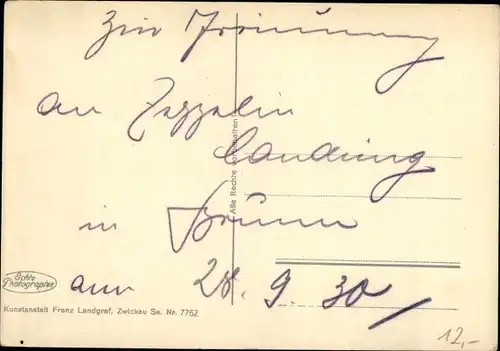 Zur Erinnerung
an Zeppelin
Landung
in Brünn
am 28. 9. 30
Alle Rechte vorbehalten
Echte
Photographie
Kunstanstalt Franz Landgraf, Zwickau Sa. Nr. 7762
12,-